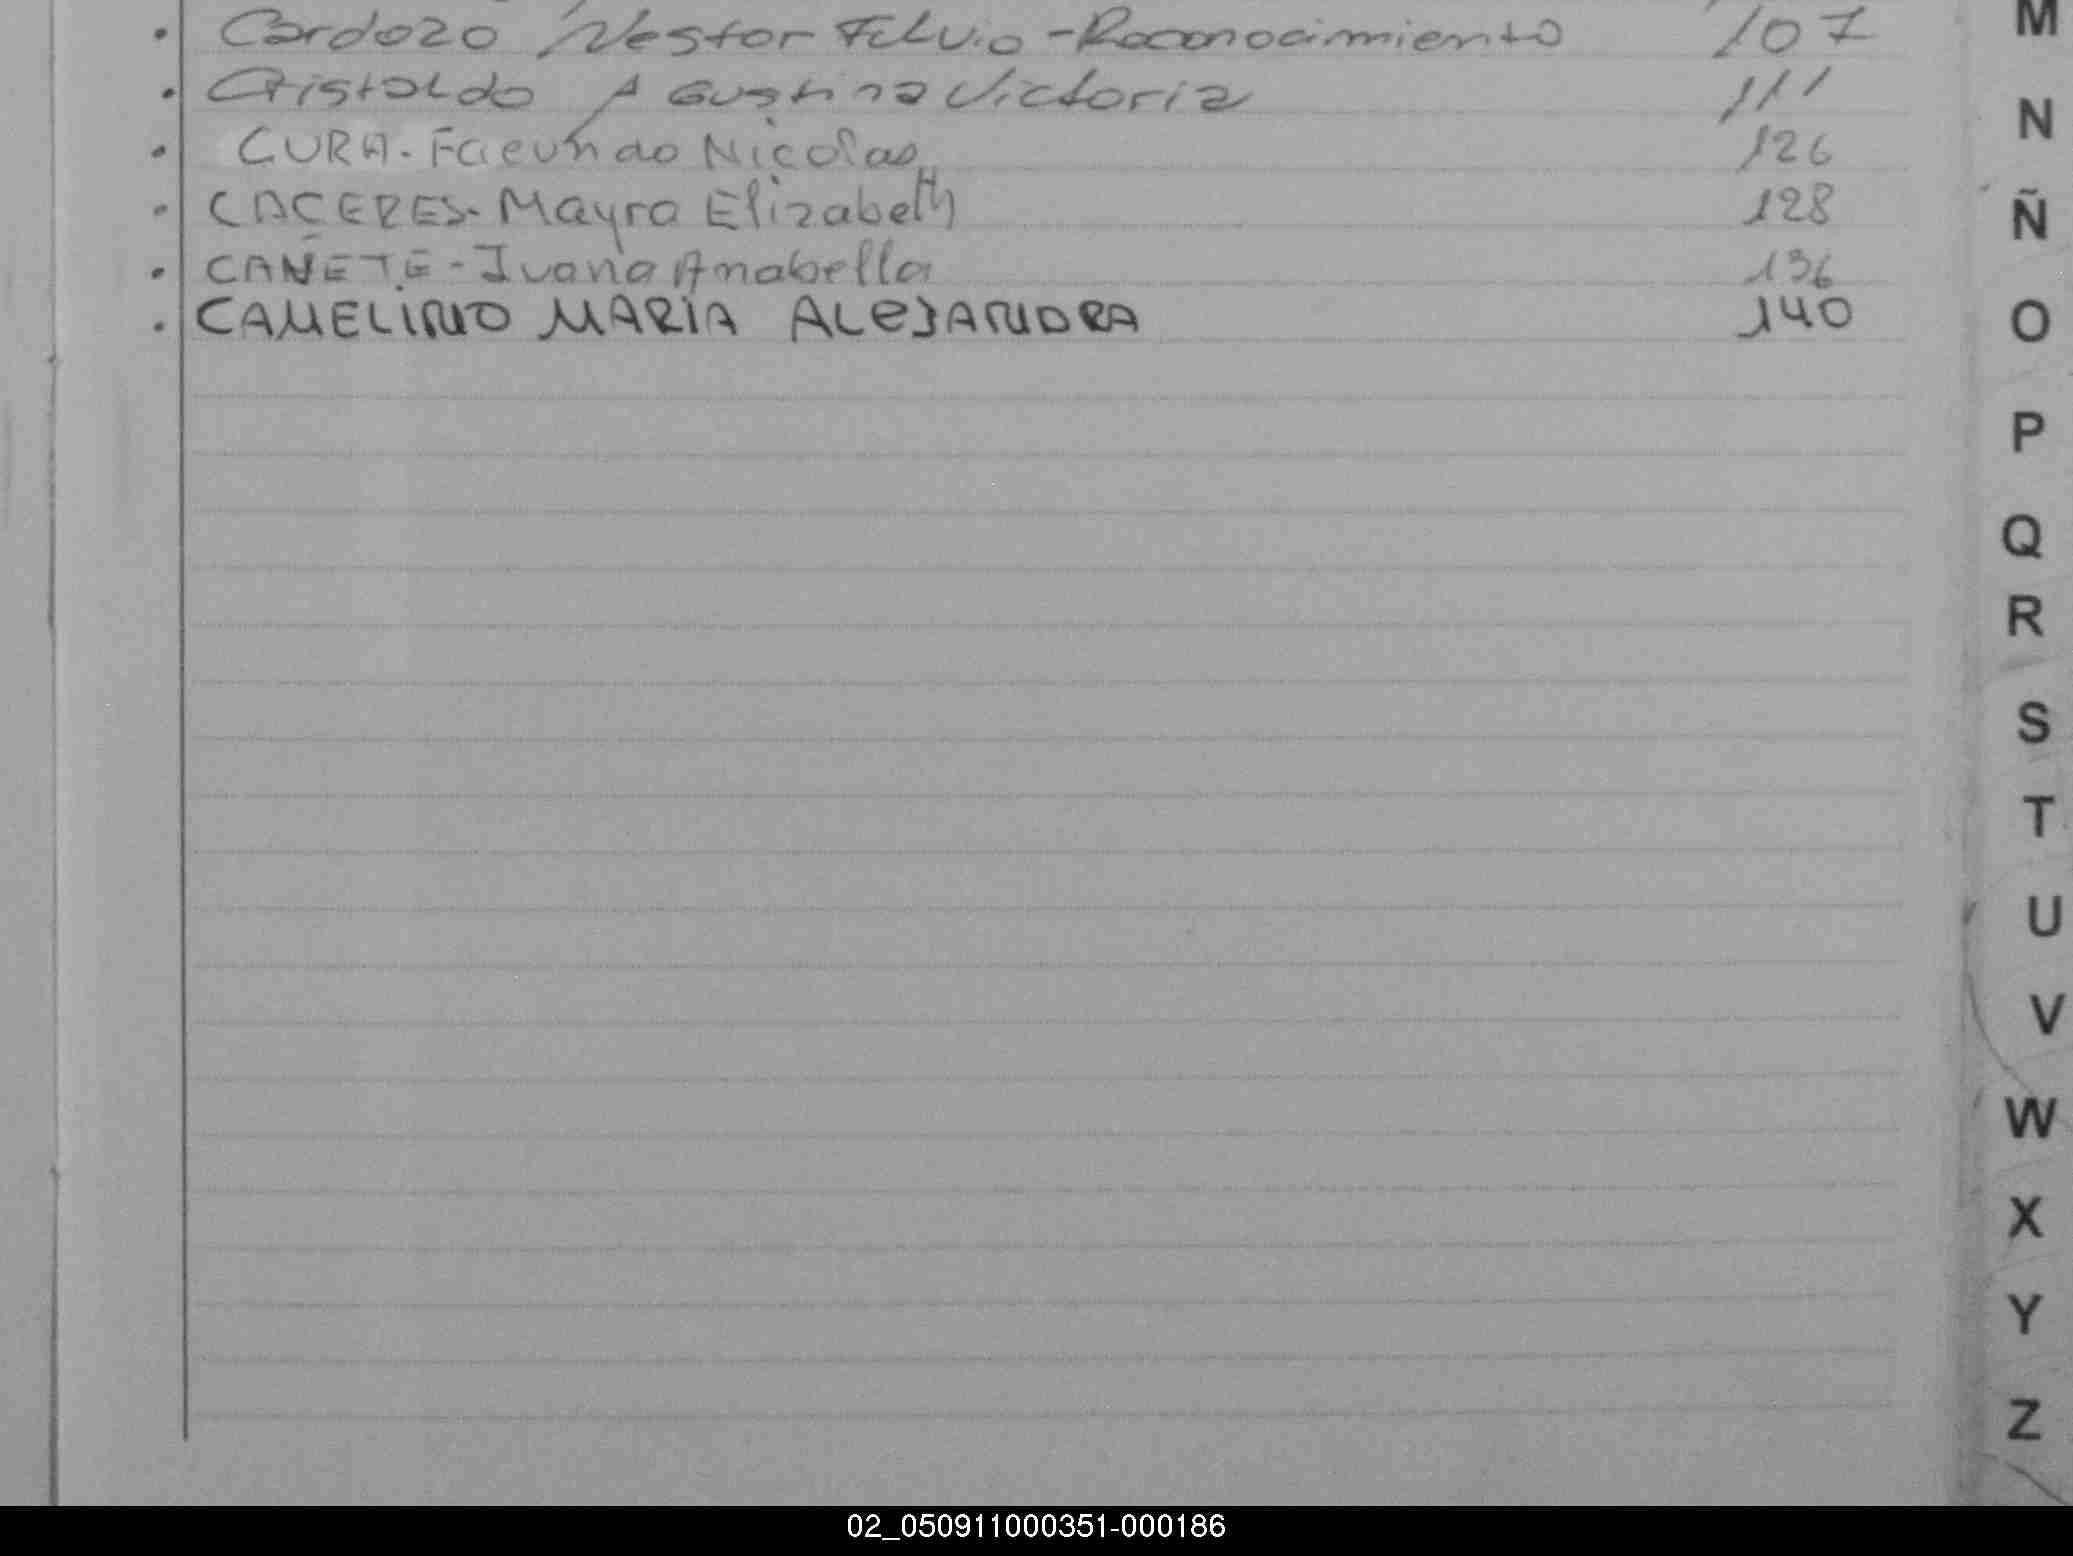 • Cardozo Nestor Fulvio - Reconocimiento 107
• Cristaldo Agustina Victoria 111
• CURA - Facundo Nicolas 126
• CACERES - Mayra Elizabeth 128
• CAÑETE - Ivana Anabella 136
• CAMELINO MARIA ALEJANDRA 140
M
N
Ñ
O
P
Q
R
S
T
U
V
W
X
Y
Z
02_050911000351-000186